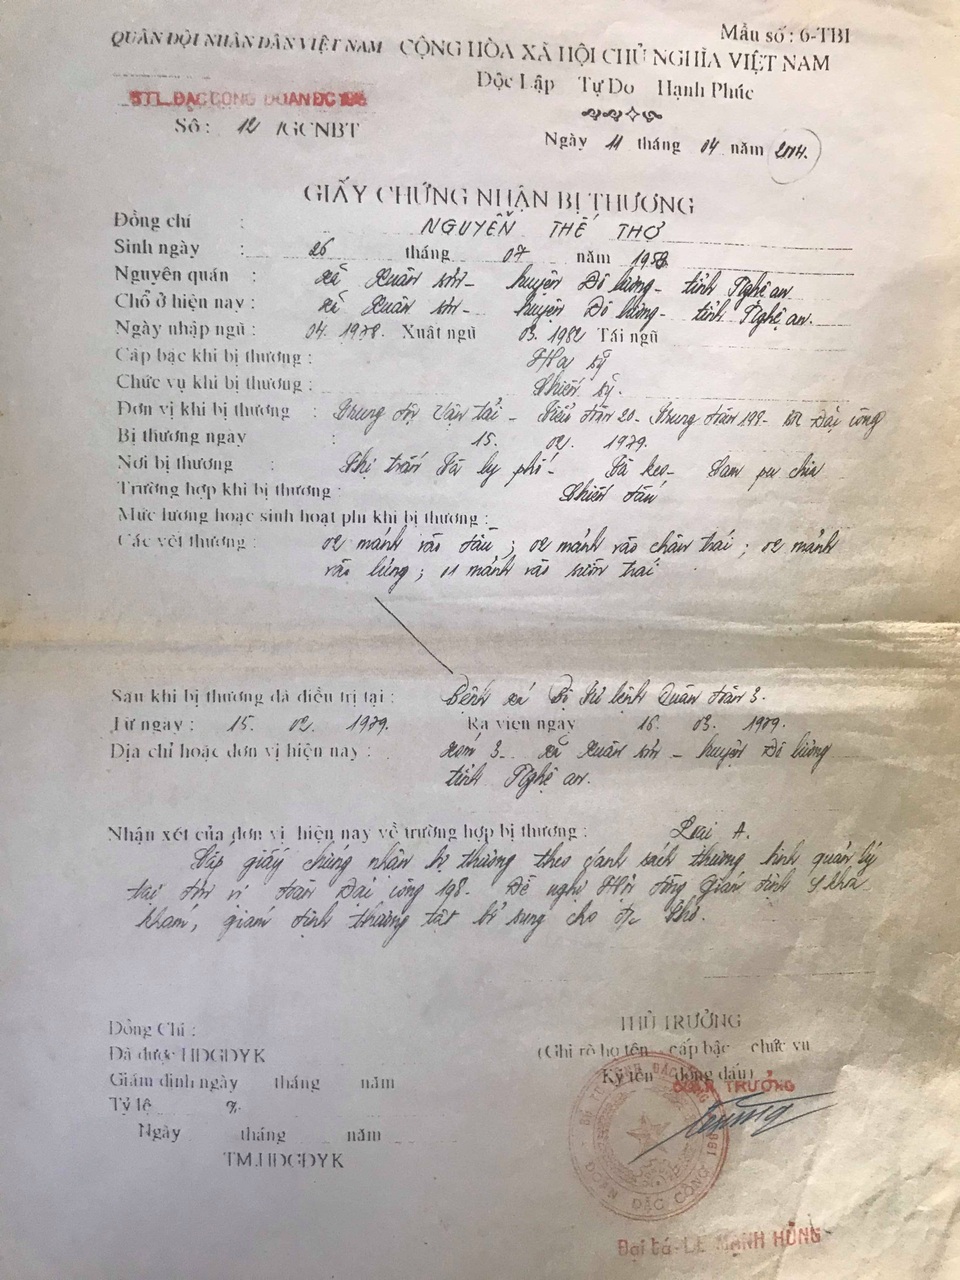 Mẫu số : 6-TBI
QUÂN ĐỘI NHÂN DÂN VIỆT NAM CỘNG HÒA XÃ HỘI CHỦ NGHĨA VIỆT NAM
Độc Lập Tự Do Hạnh Phúc
BTL. ĐẶC CÔNG ĐOÀN ĐC 198
Số : 12 /GCNBT
Ngày 11 tháng 04 năm 2014.
GIẤY CHỨNG NHẬN BỊ THƯƠNG
Đồng chí : NGUYỄN THẾ THƠ
Sinh ngày : 26 tháng 07 năm 1958
Nguyên quán : xã Xuân Sơn - huyện Đô lương - tỉnh Nghệ an
Chổ ở hiện nay : xã Xuân Sơn - huyện Đô lương - tỉnh Nghệ an.
Ngày nhập ngũ : 04. 1978. Xuất ngũ 03. 1982 Tái ngũ
Cấp bậc khi bị thương : Hạ sỹ
Chức vụ khi bị thương : Chiến sỹ.
Đơn vị khi bị thương : Trung đội Vận tải - Tiểu đoàn 20 - Trung đoàn 198 - Đặc công
Bị thương ngày : 15. 02. 1979.
Nơi bị thương : Thị trấn - Tà keo -
Trường hợp khi bị thương : Chiến đấu
Mức lương hoặc sinh hoạt phí khi bị thương :
Các vết thương : 02 mảnh vào đầu ; 02 mảnh vào chân trái ; 02 mảnh
vào lưng ; 01 mảnh vào sườn trái
Sau khi bị thương đã điều trị tại : Bệnh xá Bộ Tư lệnh Quân đoàn 3.
Từ ngày : 15. 02. 1979. Ra viện ngày 16. 03. 1979.
Địa chỉ hoặc đơn vị hiện nay : Xóm 3 - xã Xuân Sơn - huyện Đô lương
tỉnh Nghệ an.
Nhận xét của đơn vị hiện nay về trường hợp bị thương : Loại A.
Cấp giấy chứng nhận bị thương theo danh sách thương binh quản lý
tại đơn vị đoàn Đặc công 198. Đề nghị Hội đồng Giám định Y khoa
khám, giám định thương tật bổ sung cho đ/c Thơ.
Đồng Chí :
Đã được HĐGĐYK
Giám định ngày tháng năm
Tỷ lệ %
Ngày tháng năm
TM.HĐGĐYK
THỦ TRƯỞNG
(Ghi rõ họ tên cấp bậc chức vụ
Ký tên đóng dấu)
ĐOÀN TRƯỞNG
BỘ TƯ LỆNH ĐẶC CÔNG
ĐOÀN ĐẶC CÔNG 198
Đại tá - LÊ MẠNH HÙNG